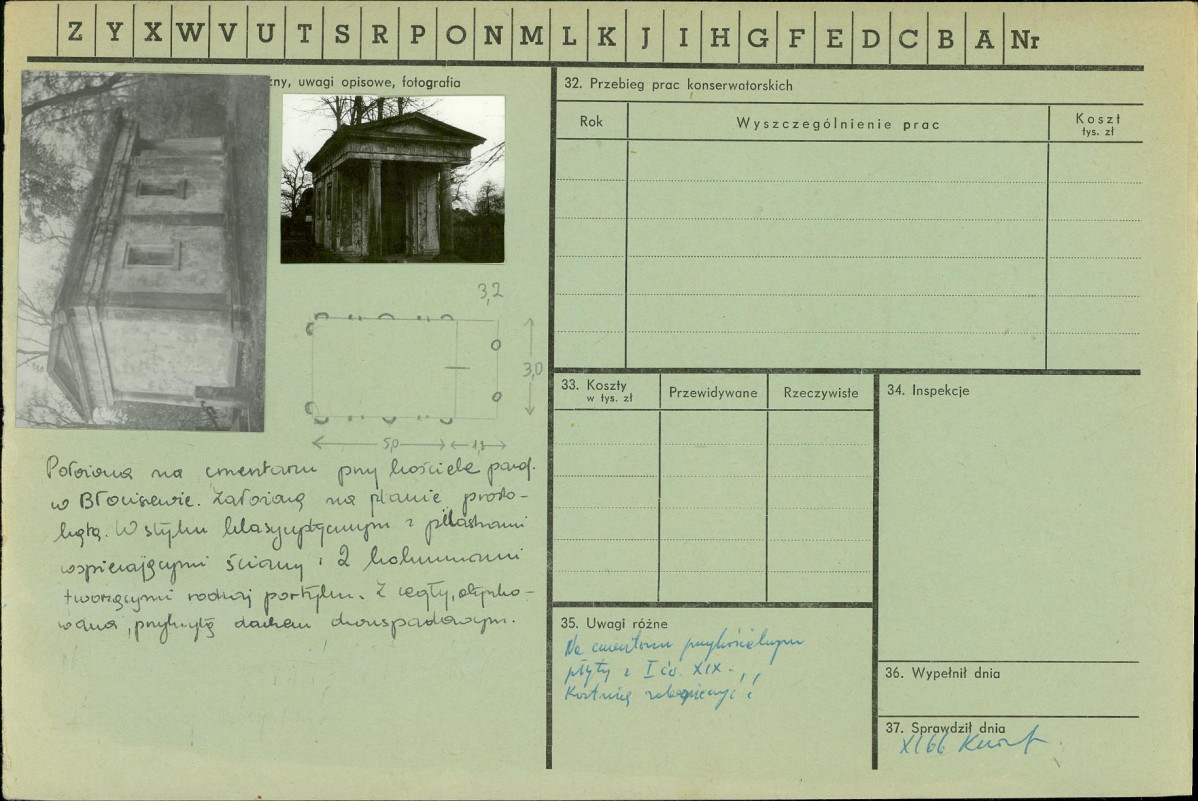 Z Y X W V U T S R P O N M L K J I H G F E D C B A Nr
zny, uwagi opisowe, fotografia
3,2
3,0
5,0
Położona na cmentarzu przy kościele paraf.
w Błoniszewie. Założona na planie prosto-
kąta. W stylu klasycystycznym z pilastrami
wspierającymi ściany i 2 kolumnami
tworzącymi rodzaj portyku. Z cegły, otynko-
wana, przykryta dachem dwuspadowym.
32. Przebieg prac konserwatorskich
Rok
Wyszczególnienie prac
Koszt
tys. zł
33. Koszty
w tys. zł
Przewidywane
Rzeczywiste
34. Inspekcje
35. Uwagi różne
Na cmentarzu przykościelnym
płyty z I ćw. XIX
Kostnicę zabezpieczyć
36. Wypełnił dnia
37. Sprawdził dnia
XI 66